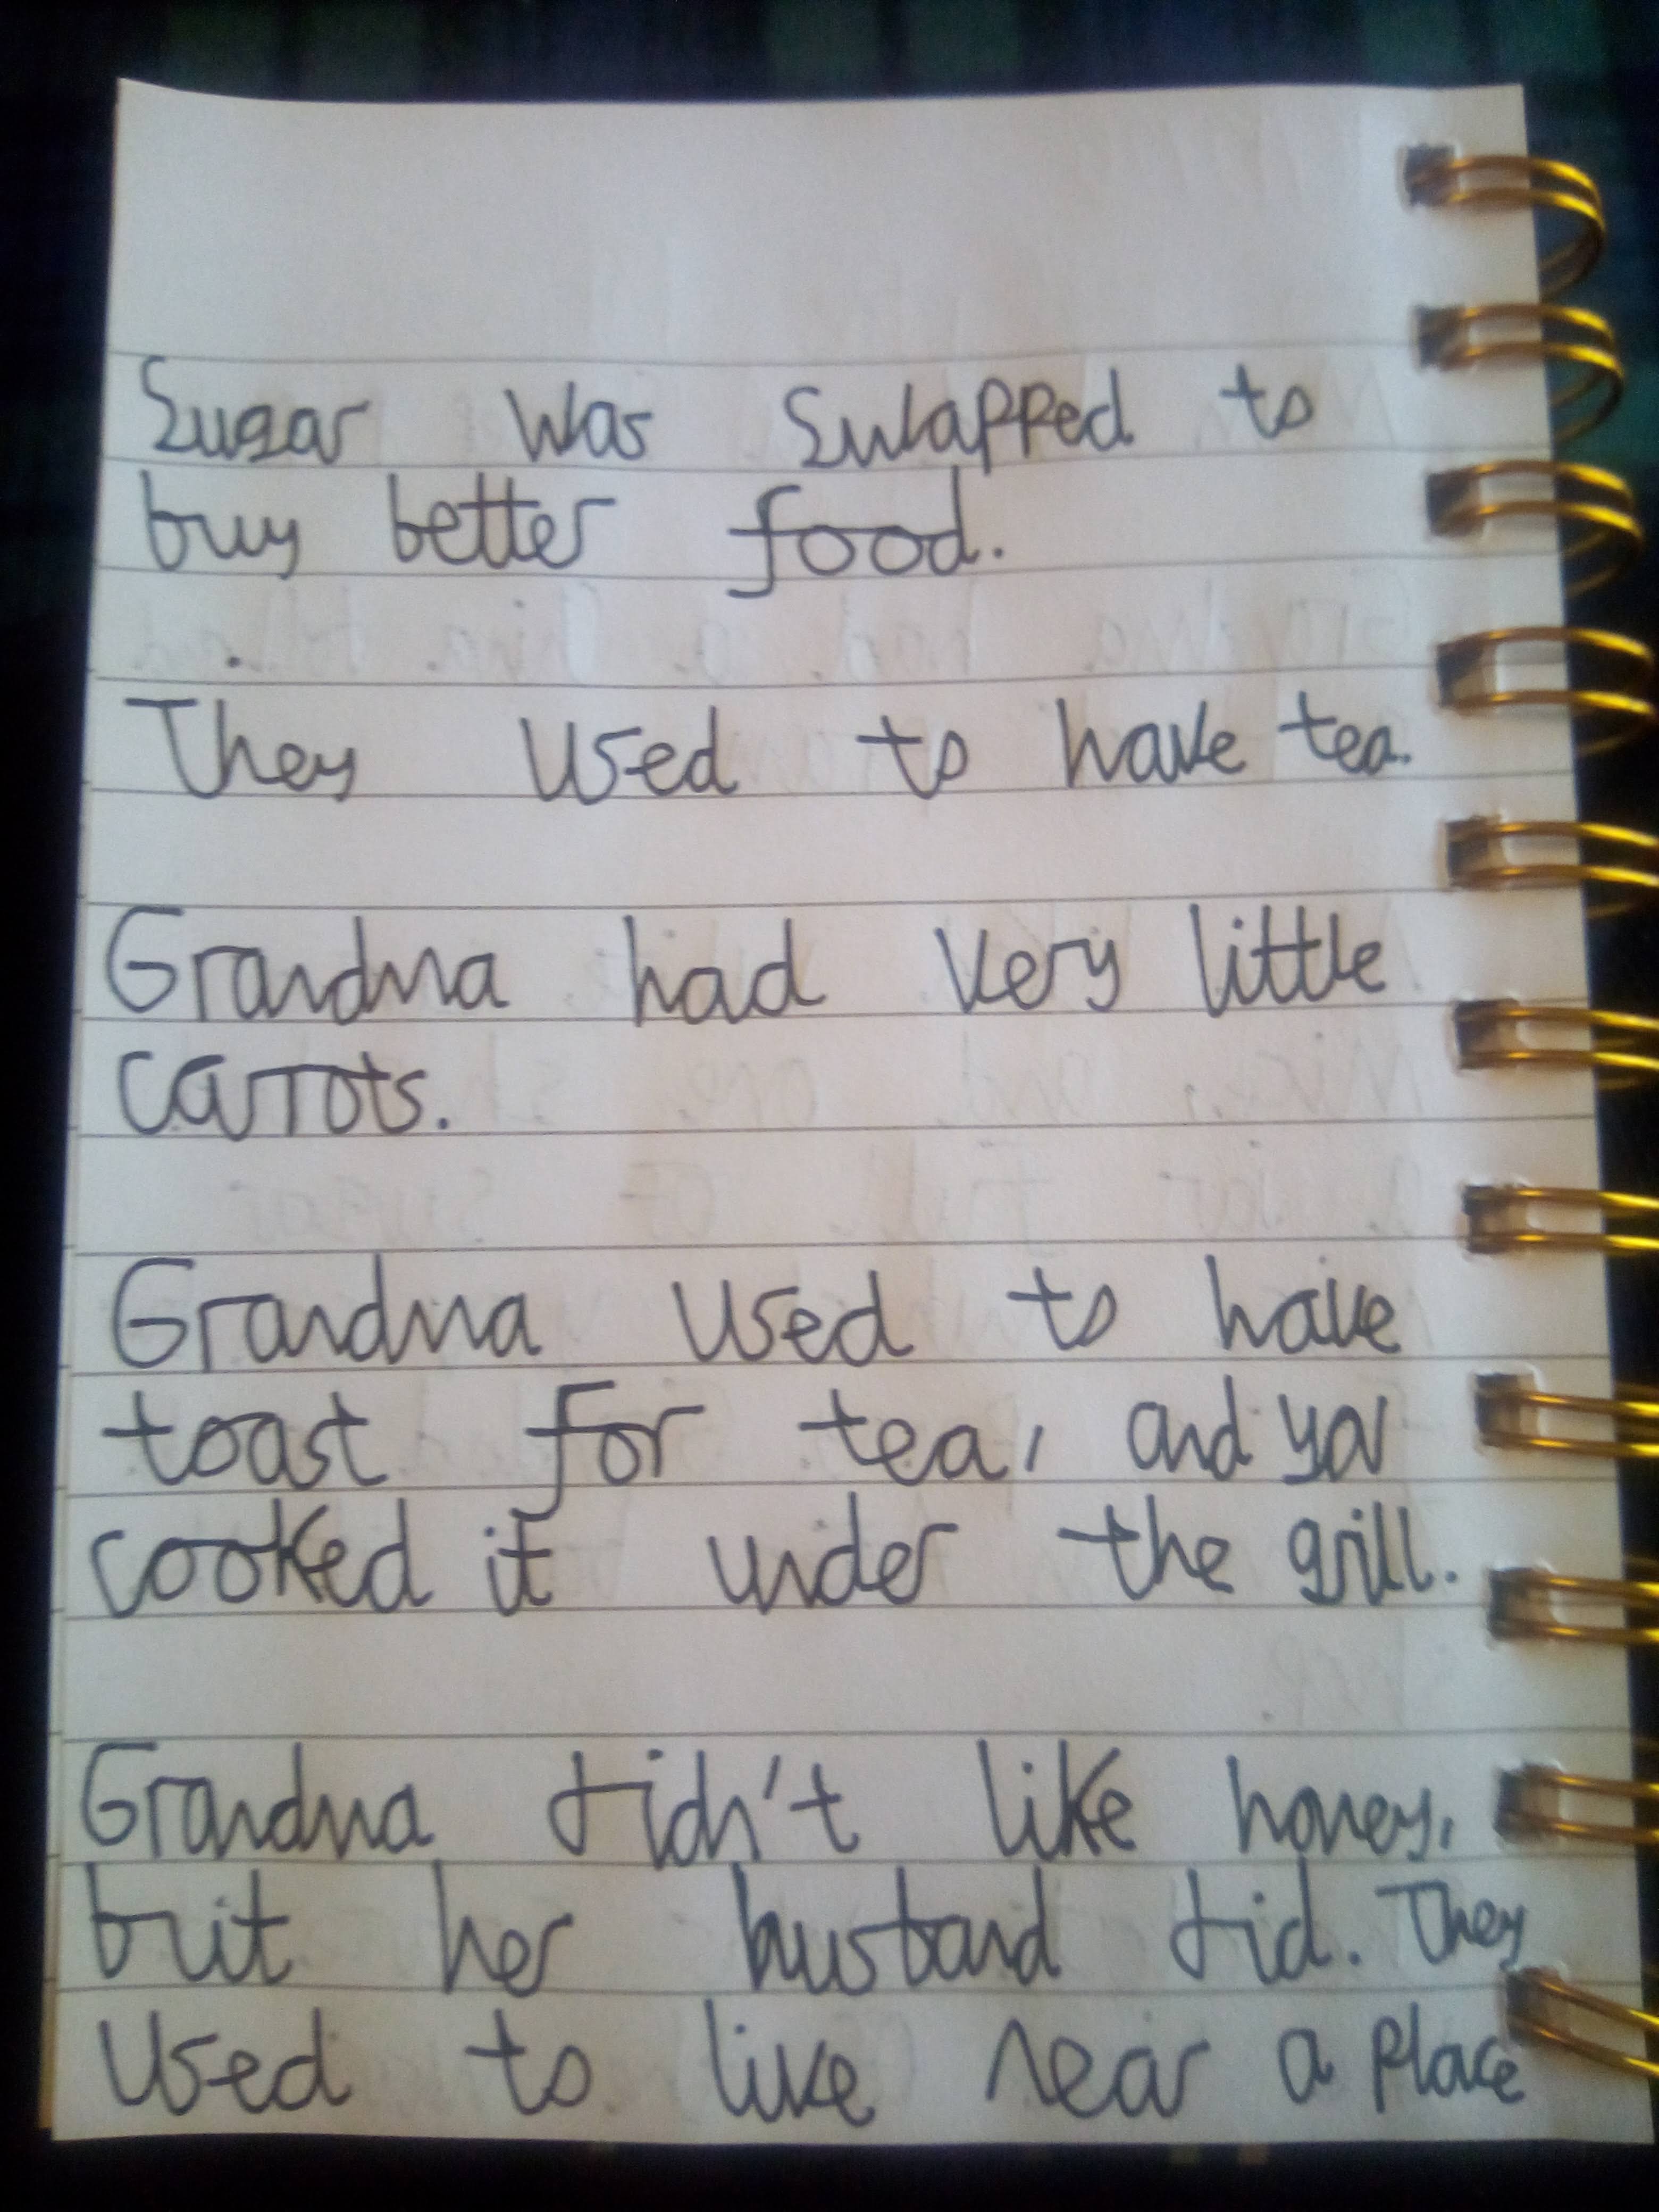 Sugar was swapped to
buy better food.
They used to have tea.
Grandma had very little
carrots.
Grandma used to have
toast for tea, and you
cooked it under the grill.
Grandma didn't like honey,
but her husband did. They
used to live near a place